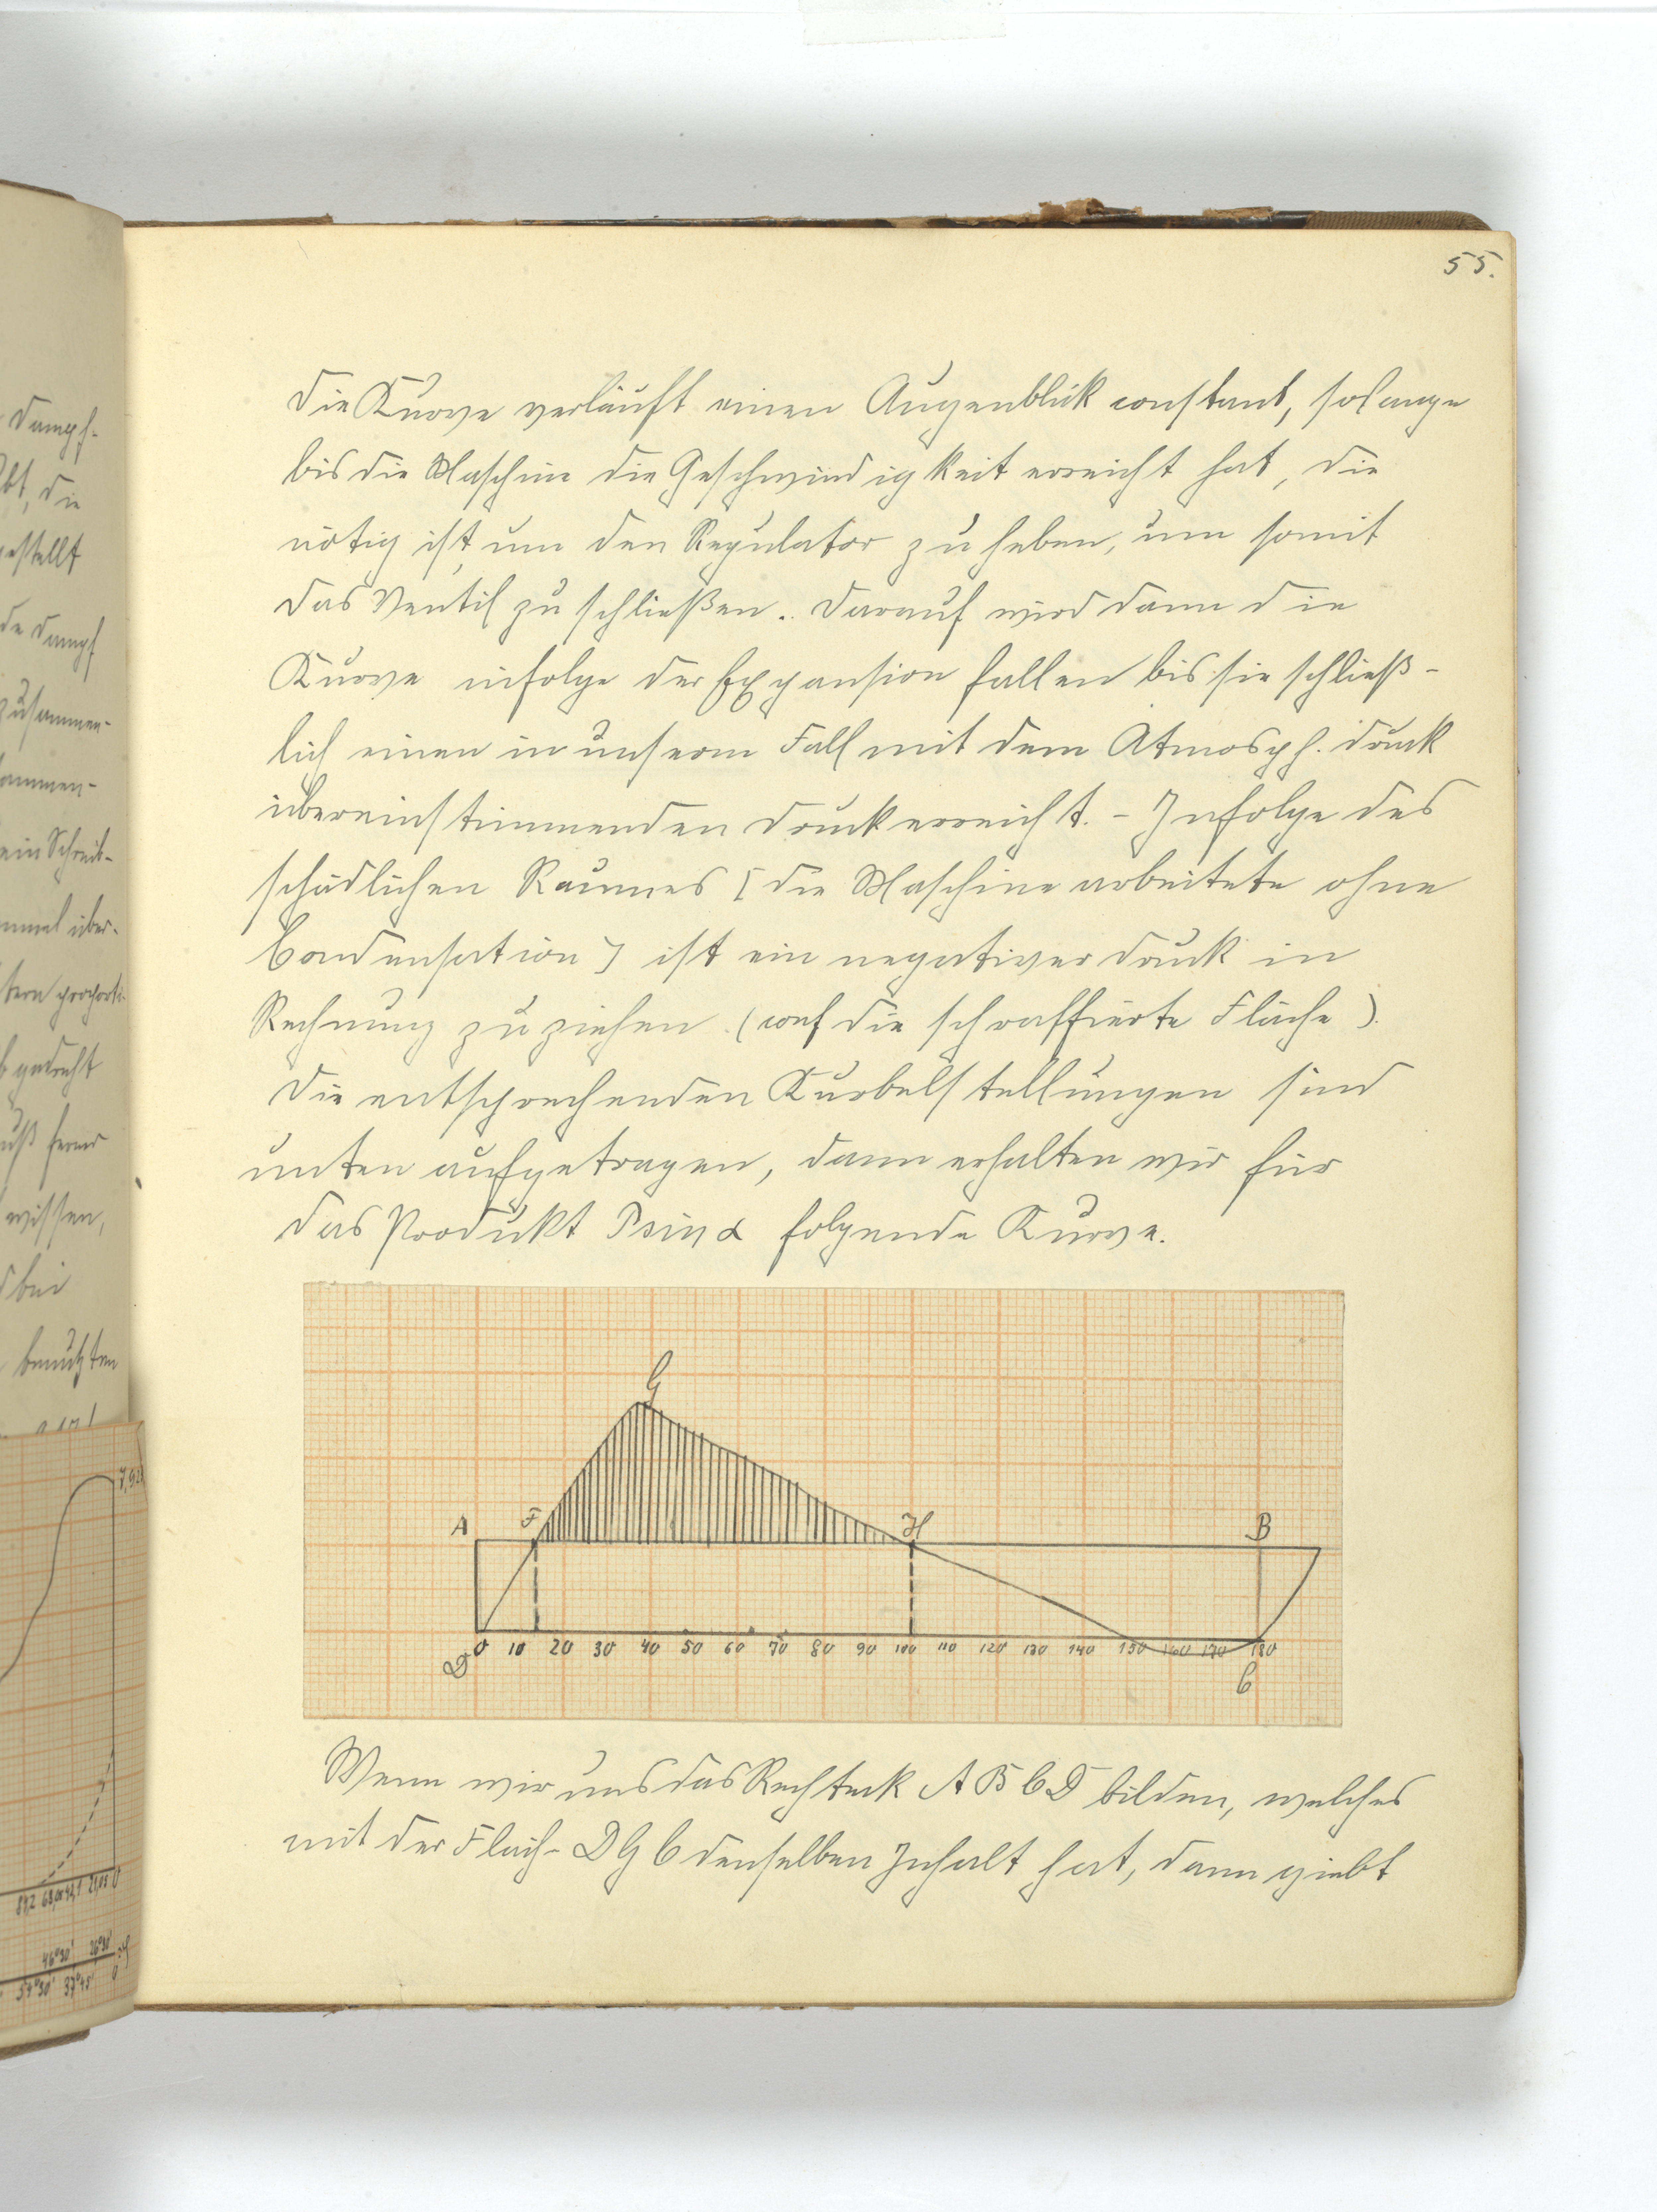 55.
Die Kurve verläuft einen Augenblick constant, solange
bis die Maschine die Geschwindigkeit erreicht hat, die
nötig ist, um den Regulator zu heben, um somit
das Ventil zu schließen. Darauf wird dann die
Kurve infolge der Expansion fallen bis sie schließ-
lich einen in unserm Fall mit dem Atmosph. druck
übereinstimmenden Druck erreicht. - Infolge des
schädlichen Raumes [die Maschine arbeitete ohne
Condensation] ist ein negativer Druck in
Rechnung zu ziehen. (conf die schraffierte Fläche).
Die entsprechenden Kurbelstellungen sind
unten aufgetragen, dann erhalten wir für
das Produkt P sin α folgende Kurve.
G
A F H B
0 10 20 30 40 50 60 70 80 90 100 110 120 130 140 150 160 170 180
D C
Wenn wir uns das Rechteck A B C D bilden, welches
mit der Fläch- D G C denselben Inhalt hat, dann giebt
Dampf-
bt, die
gestellt
de Dampf
zusammen-
ammen-
ein Schreib-
nmal über-
tern proporti-
b gedreht
uß ferner
wissen,
d bei
benutzten